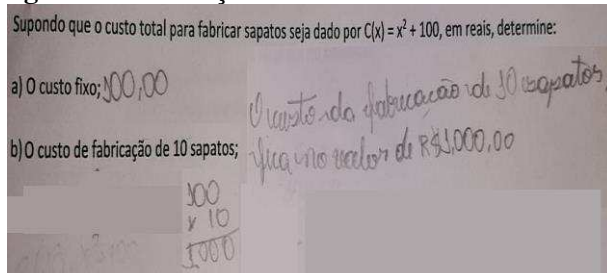 Supondo que o custo total para fabricar sapatos seja dado por C(x) = x² + 100, em reais, determine:
a) O custo fixo; 100,00
O custo da fabricação de 10 sapatos
b) O custo de fabricação de 10 sapatos; fica no valor de R$1,000,00
100
x 10
1000